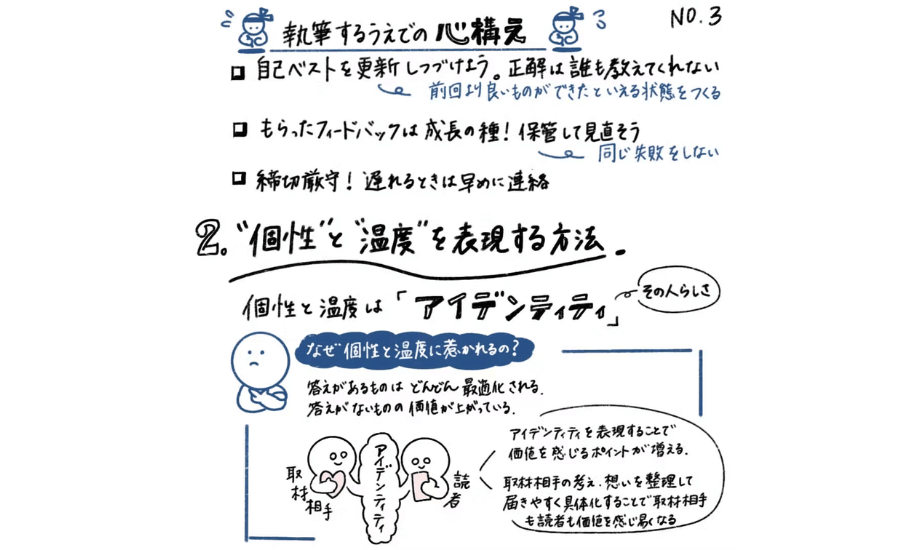 NO.3
執筆するうえでの心構え
自己ベストを更新しつづけよう。正解は誰も教えてくれない
前回より良いものができたといえる状態をつくる
もらったフィードバックは成長の種！保管して見直そう
同じ失敗をしない
締切厳守！遅れるときは早めに連絡
2."個性"と"温度"を表現する方法.
個性と温度は「アイデンティティ」
その人らしさ
なぜ個性と温度に惹かれるの？
答えがあるものはどんどん最適化される.
答えがないものの価値が上がっている.
取材相手
アイデンティティ
読者
アイデンティティを表現することで
価値を感じるポイントが増える.
取材相手の考え.想いを整理して
届きやすく具体化することで取材相手
も読者も価値を感じ易くなる